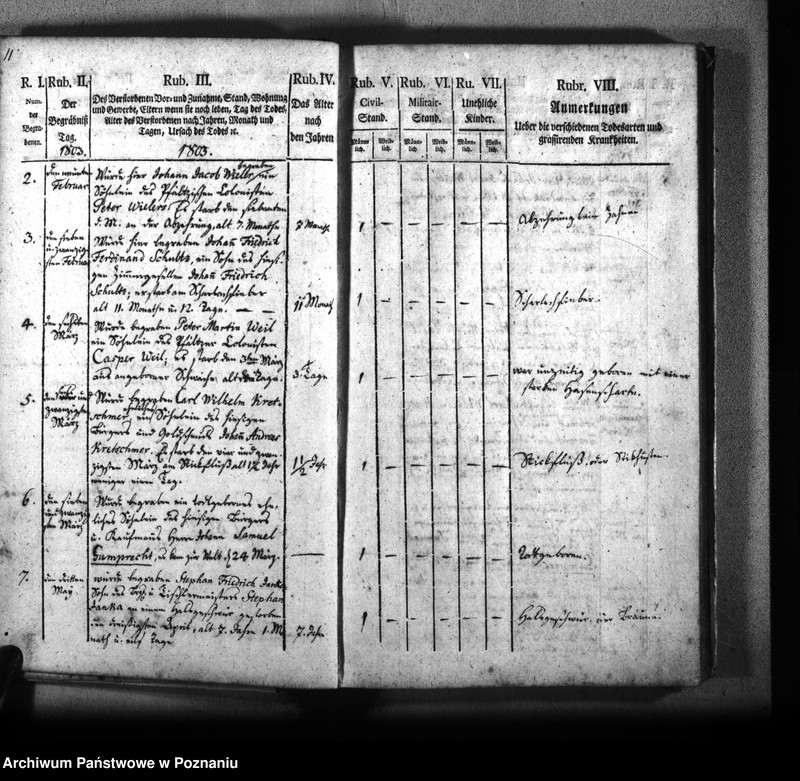 11
R. I.
Num.
der
Begra-
benen.
Rub. II.
Der
Begräbniß
Tag.
1803.
Rub. III.
Des Verstorbenen Vor- und Zunahme, Stand, Wohnung
und Gewerbe, Eltern wenn sie noch leben, Tag des Todes,
Alter des Verstorbenen nach Jahren, Monath und
Tagen, Ursach des Todes ꝛc.
1803.
Rub. IV.
Das Alter
nach
den Jahren
Rub. V.
Civil-
Stand.
Männ-
lich.
Weib-
lich.
Rub. VI.
Militair-
Stand.
Männ-
lich.
Weib-
lich.
Ru. VII.
Unehliche
Kinder.
Männ-
lich.
Weib-
lich.
Rubr. VIII.
Anmerkungen
Ueber die verschiedenen Todesarten und
grassirenden Krankheiten.
2.
den neunten
Februar
Wurde hier Johann Jacob Wieler begraben, ein
Söhnlein des Pfältzischen Colonisten
Peter Wielers. Es starb den siebenten
d. M. an der Abzehrung, alt 7. Monathe
7 Monath
1 – – – – –
Abzehrung beim Zahnen
3.
den sieben
u. zwanzig-
sten Februar
Wurde hier begraben Johann Friedrich
Ferdinand Schultz, ein Sohn des hiesi-
gen Zimmergesellen Johann Friedrich
Schultz; er starb am Scharlachfieber
alt 11. Monathe u. 12. Tage.
11 Monath
1 – – – – –
Scharlachfieber.
4.
März
Wurde begraben Peter Martin Weil
ein Söhnlein des Pfältzer Colonisten
Casper Weil; es starb den 3ten März
aus angeborner Schwäche, alt Tage.
3. Tage
1 – – – – –
war unzeitig geboren mit einer
starken Hasenscharte.
5.
den und
zwanzigsten
März
Wurde begraben Carl Wilhelm Kret-
schmer, ein Söhnlein des hiesigen
Bürgers und Goldschmids Johann Andreas
Kretschmer. Er starb den vier und zwan-
zigsten März am Stickfluß, alt 1½ Jahr
weniger einen Tag.
1½ Jahr
1 – – – – –
Stickfluß, oder Stickhusten.
6.
den sieben
und zwanzig-
sten März
Wurde begraben ein todtgebornes ehe-
liches Söhnlein des hiesigen Bürgers
u. Kaufmans Herrn Johann Samuel
Gumprecht, u. kam zur Welt d. 24 März.
1 – – – – –
Todtgeboren.
7.
den dritten
May
wurde begraben Stephan Fridrich Janka
Sohn des Bürg. u. Tischlermeisters Stephan
Janka an einem Halsgeschwür gestorben
den dreißigsten April, alt 7. Jahre 1. M
nath u. eilf Tage
7. Jahre
1 – – – – –
Halsgeschwür, oder Bräune.
Archiwum Państwowe w Poznaniu